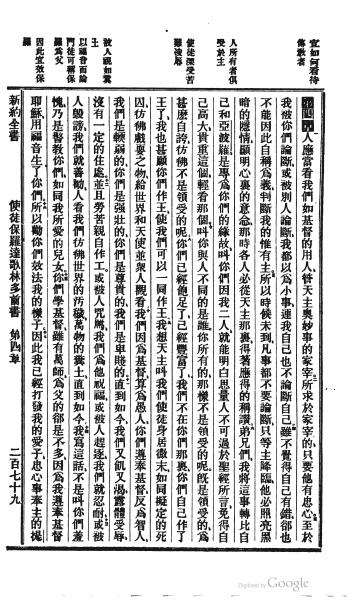 宜如何看待
傳敎者
人所有者俱
受於主
使徒深受苦
難凌辱
被人視如糞
土
以福音而論
門徒可稱保
羅爲父
因此宜效保
羅
第四章 人應當看我們如基督的用人、督天主奧妙事的家宰所求於家宰的、只要他有忠心至於
我被你們論斷或被別人論斷我都以爲小事連我自己也不論斷自己雖不覺得自己有錯卻也
不能因此自稱爲義判斷我的惟有主所以時候未到凡事都不要論斷只等主降臨他必照亮黑
暗的隱情顯明心裏的意念那時各人必從天主那裏得著應得的稱讚弟兄們我將這事轉比自
己和亞波羅是專爲你們的緣故叫你們因我二人就能明白思量人不可過於聖經所言免得自
己高大貴重這個輕看那個叫你與人不同的是誰你所有的那樣不是領受的呢旣是領受的爲
甚麽自誇仿佛不是領受的呢你們已經飽足了已經豐富了我們不在你們那裏你們自己作
王了我也甚願你們作王使我們可以一同作王我想天主叫我們使徒身居微末如同擬定的死
囚仿佛戲耍之物給世界和天使並與人觀看我們因爲基督算爲愚人你們遵奉基督反爲智人
我們是輭弱的你們是强壯的你們是尊貴的我們是卑賤的直到如今我們又飢又渴露體受辱
沒有一定的住處並且勞苦親自作工或被人咒罵我們爲他祝福或被人趕逐我們就忍耐或被
人毀謗我們就善勸人看我們仿佛世界的汚穢萬物的糞土直到如今我寫這話不是叫你們羞
愧乃是警敎你們如同我所愛的兒女你們學基督雖有萬師爲父的卻是不多因爲我遵奉基督
耶穌用福音生了你們所以勸你們效法我的樣子因此我已經打發我的愛子忠心事奉主的提
新約全書 使徒保羅達歌林多前書 第四章 二百七十九
Digitized by Google